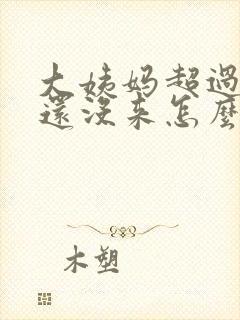 大姨妈超過
還沒来怎麼
木塑